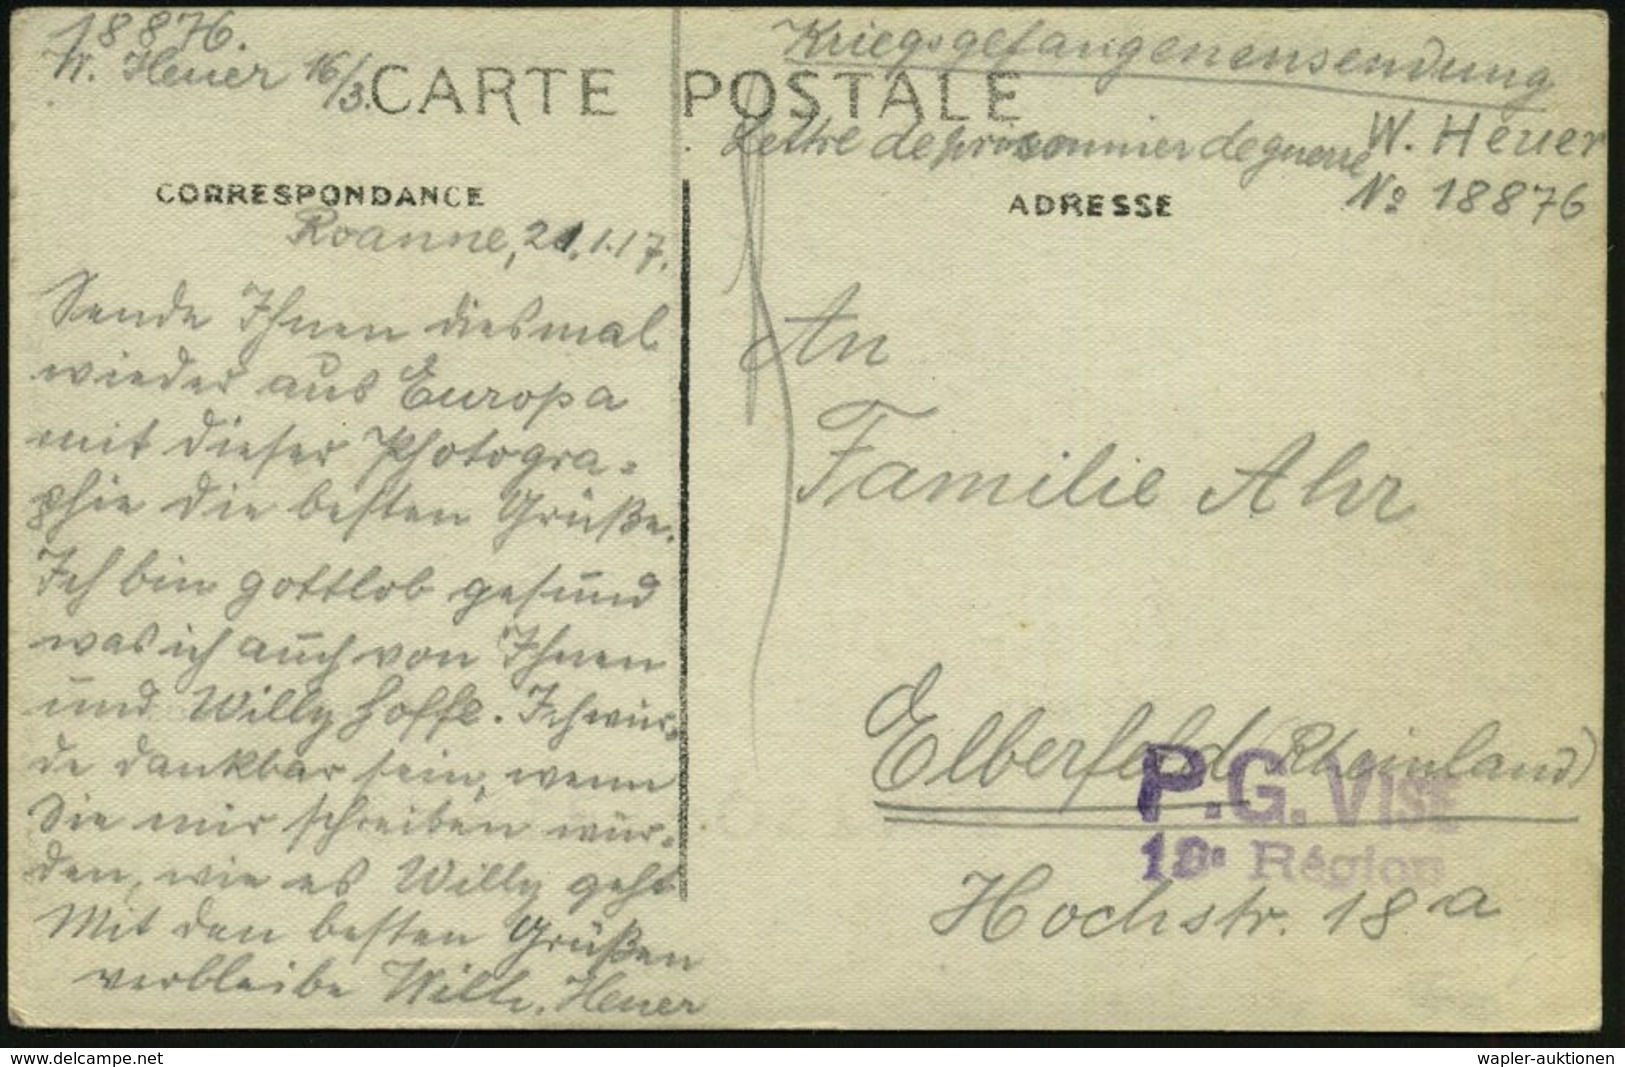 18876.
W. Heuer 16/3.
CARTE POSTALE
CORRESPONDANCE
Roanne, 21.1.17.
Sende Ihnen diesmal
wieder aus Europa
mit dieser Photogra=
phie die besten Grüße.
Ich bin gottlob gesund
was ich auch von Ihnen
und Willy hoffe. Ich wür=
de dankbar sein, wenn
Sie mir schreiben wür=
den, wie es Willy geht
Mit den besten Grüßen
verbleibe Willi. Heuer
Kriegsgefangenensendung
Lettre de prisonnier de guerre
W. Heuer
No 18876
ADRESSE
An
Familie Ahr
Elberfeld (Rheinland)
P.G. VISÉ
Région
Hochstr. 18 a
www.delcampe.net
wapler-auktionen